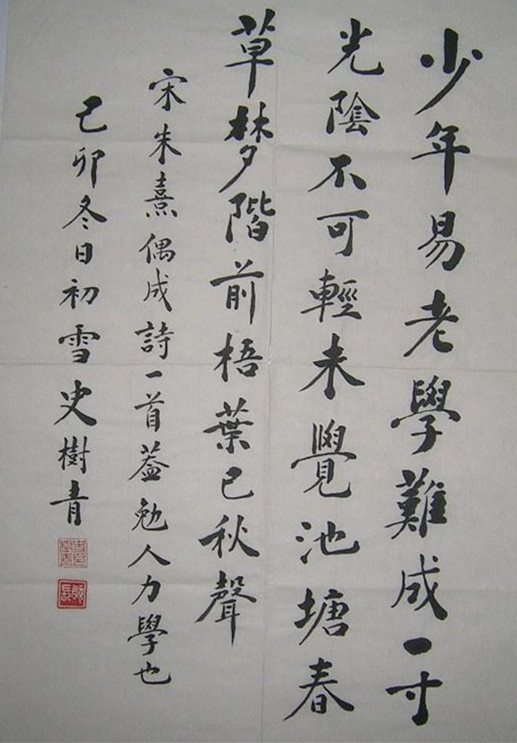 少年易老學難成一寸
光陰不可輕未覺池塘春
草梦階前梧葉已秋聲
宋朱熹偶成詩一首蓋勉人力學也
己卯冬日初雪史樹青